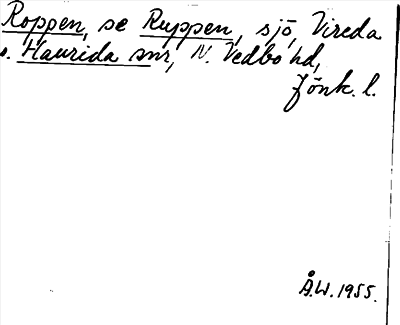 Roppen, se Ruppen, sjö, Vireda
o. Haurida snr, N. Vedbo hd,
Jönk. l.
Å.W. 1955.